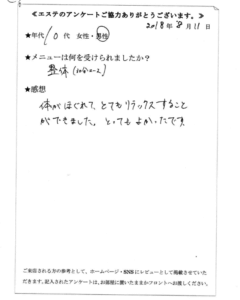 ≪エステのアンケートご協力ありがとうございます。≫
2018年8月11日
★年代 10代 女性・男性
★メニューは何を受けられましたか？
整体
★感想
体がほぐれて、とてもリラックスすること
ができました。とってもよかったです
ご来店される方の参考として、ホームページ・SNSにレビューとして掲載させていた
だきます。記入されたアンケートは、お部屋に置いたままかフロントへお渡しください。